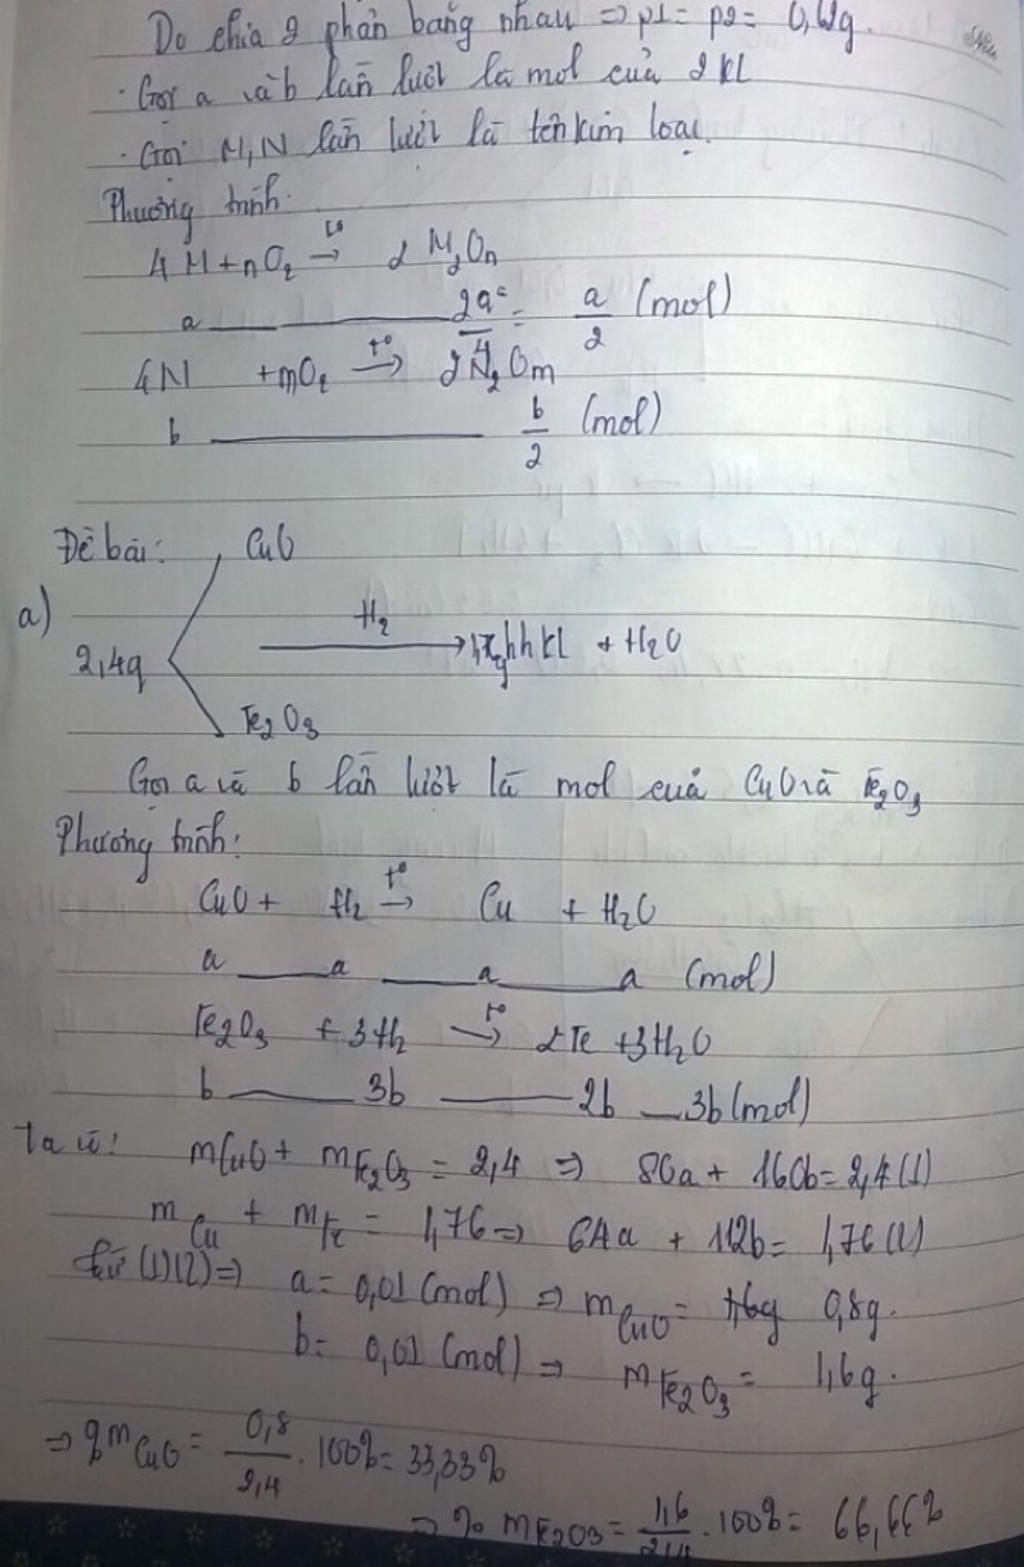 Do chia 2 phần bằng nhau => p1 = p2 = 0,62g.
· Gọi a và b lần lượt là mol của 2 KL
· Gọi M, N lần lượt là tên kim loại.
Phương trình:
4M + nO₂ –t°→ 2M₂Oₙ
a ——— 2a/4 = a/2 (mol)
4N + mO₂ –t°→ 2N₂Oₘ
b ——— b/2 (mol)
Đề bài: CuO
a) 2,4g –H₂→ hh kl + H₂O
Fe₂O₃
Gọi a và b lần lượt là mol của CuO và Fe₂O₃
Phương trình:
CuO + H₂ –t°→ Cu + H₂O
a —— a —— a —— a (mol)
Fe₂O₃ + 3H₂ –t°→ 2Fe + 3H₂O
b —— 3b —— 2b — 3b (mol)
Ta có: mCuO + mFe₂O₃ = 2,4 => 80a + 160b = 2,4 (1)
mCu + mFe = 1,76 => 64a + 112b = 1,76 (2)
Từ (1)(2) => a = 0,01 (mol) => mCuO = 0,8g.
b = 0,01 (mol) => mFe₂O₃ = 1,6g.
=> %mCuO = 0,8/2,4 . 100% = 33,33%
=> % mFe₂O₃ = 1,6/2,4 . 100% = 66,66%